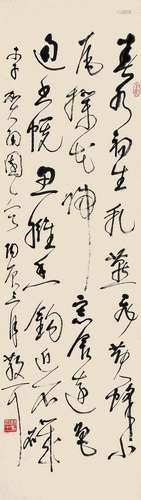 春水初生乳燕飞黄蜂小
尾扑花归窗含远色
通书幌鱼拥香钩近石矶
李贺南园之八